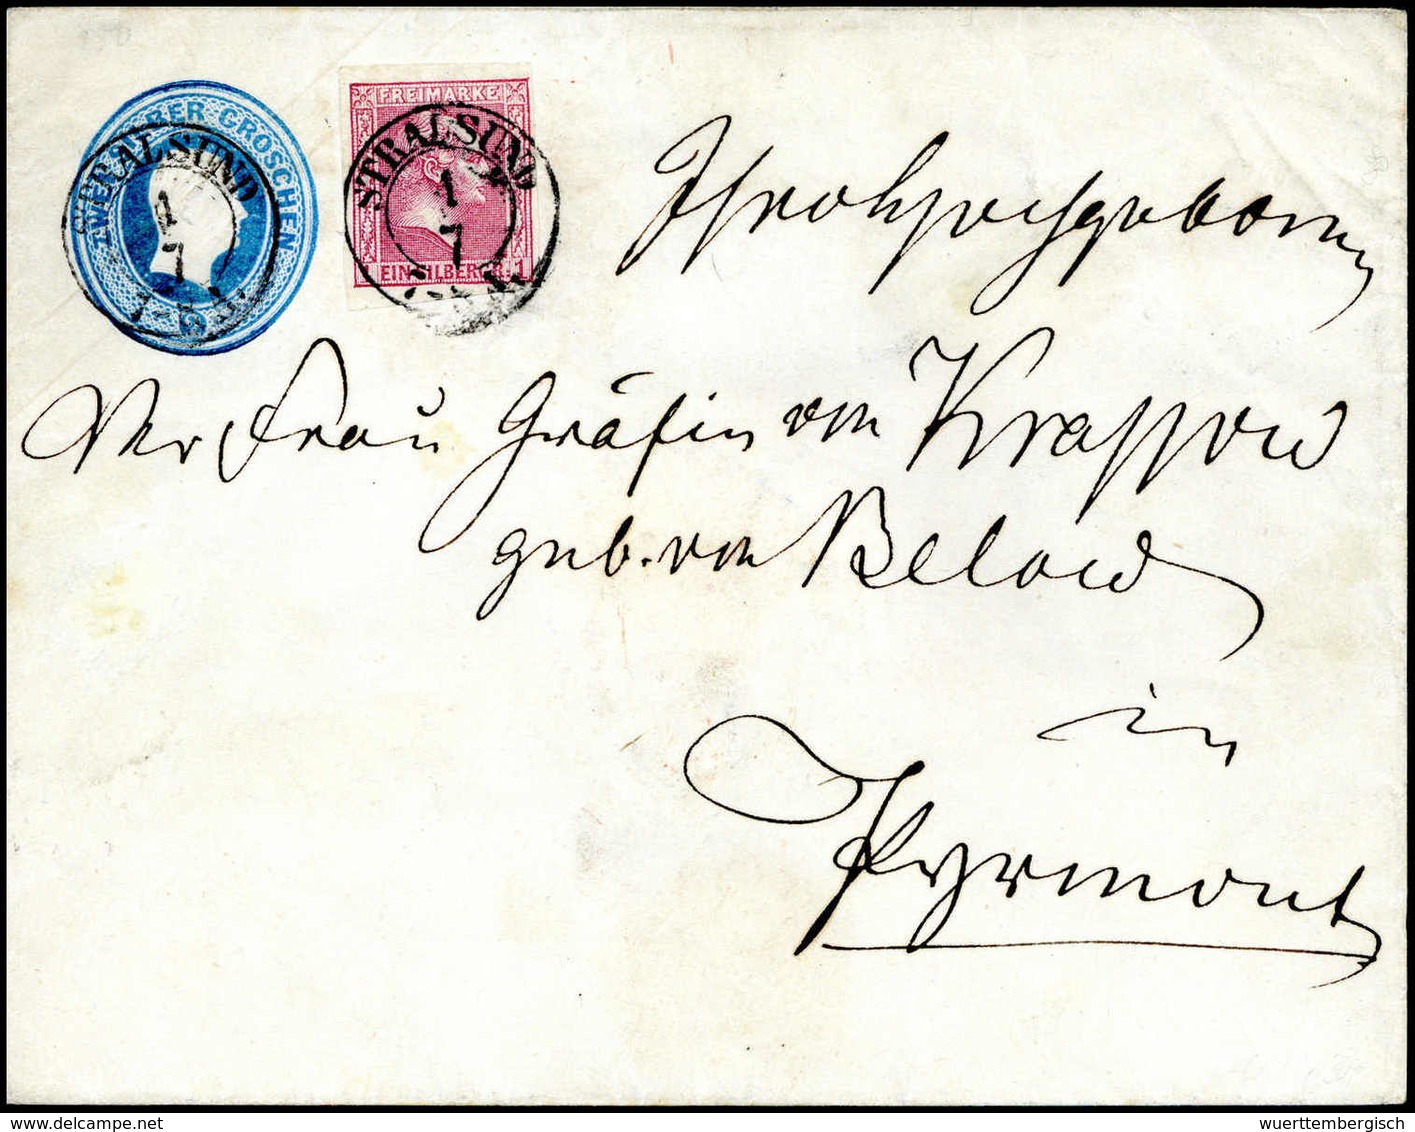 ZWEI SILBER GROSCHEN
STRALSUND
1
7
FREIMARKE
EIN SILBERGR. 1
STRALSUND
1
7
Ihro Hochgeboren
Der Frau Gräfin von Krassow
geb. von Below
in
Pyrmont
wuerttembergisch